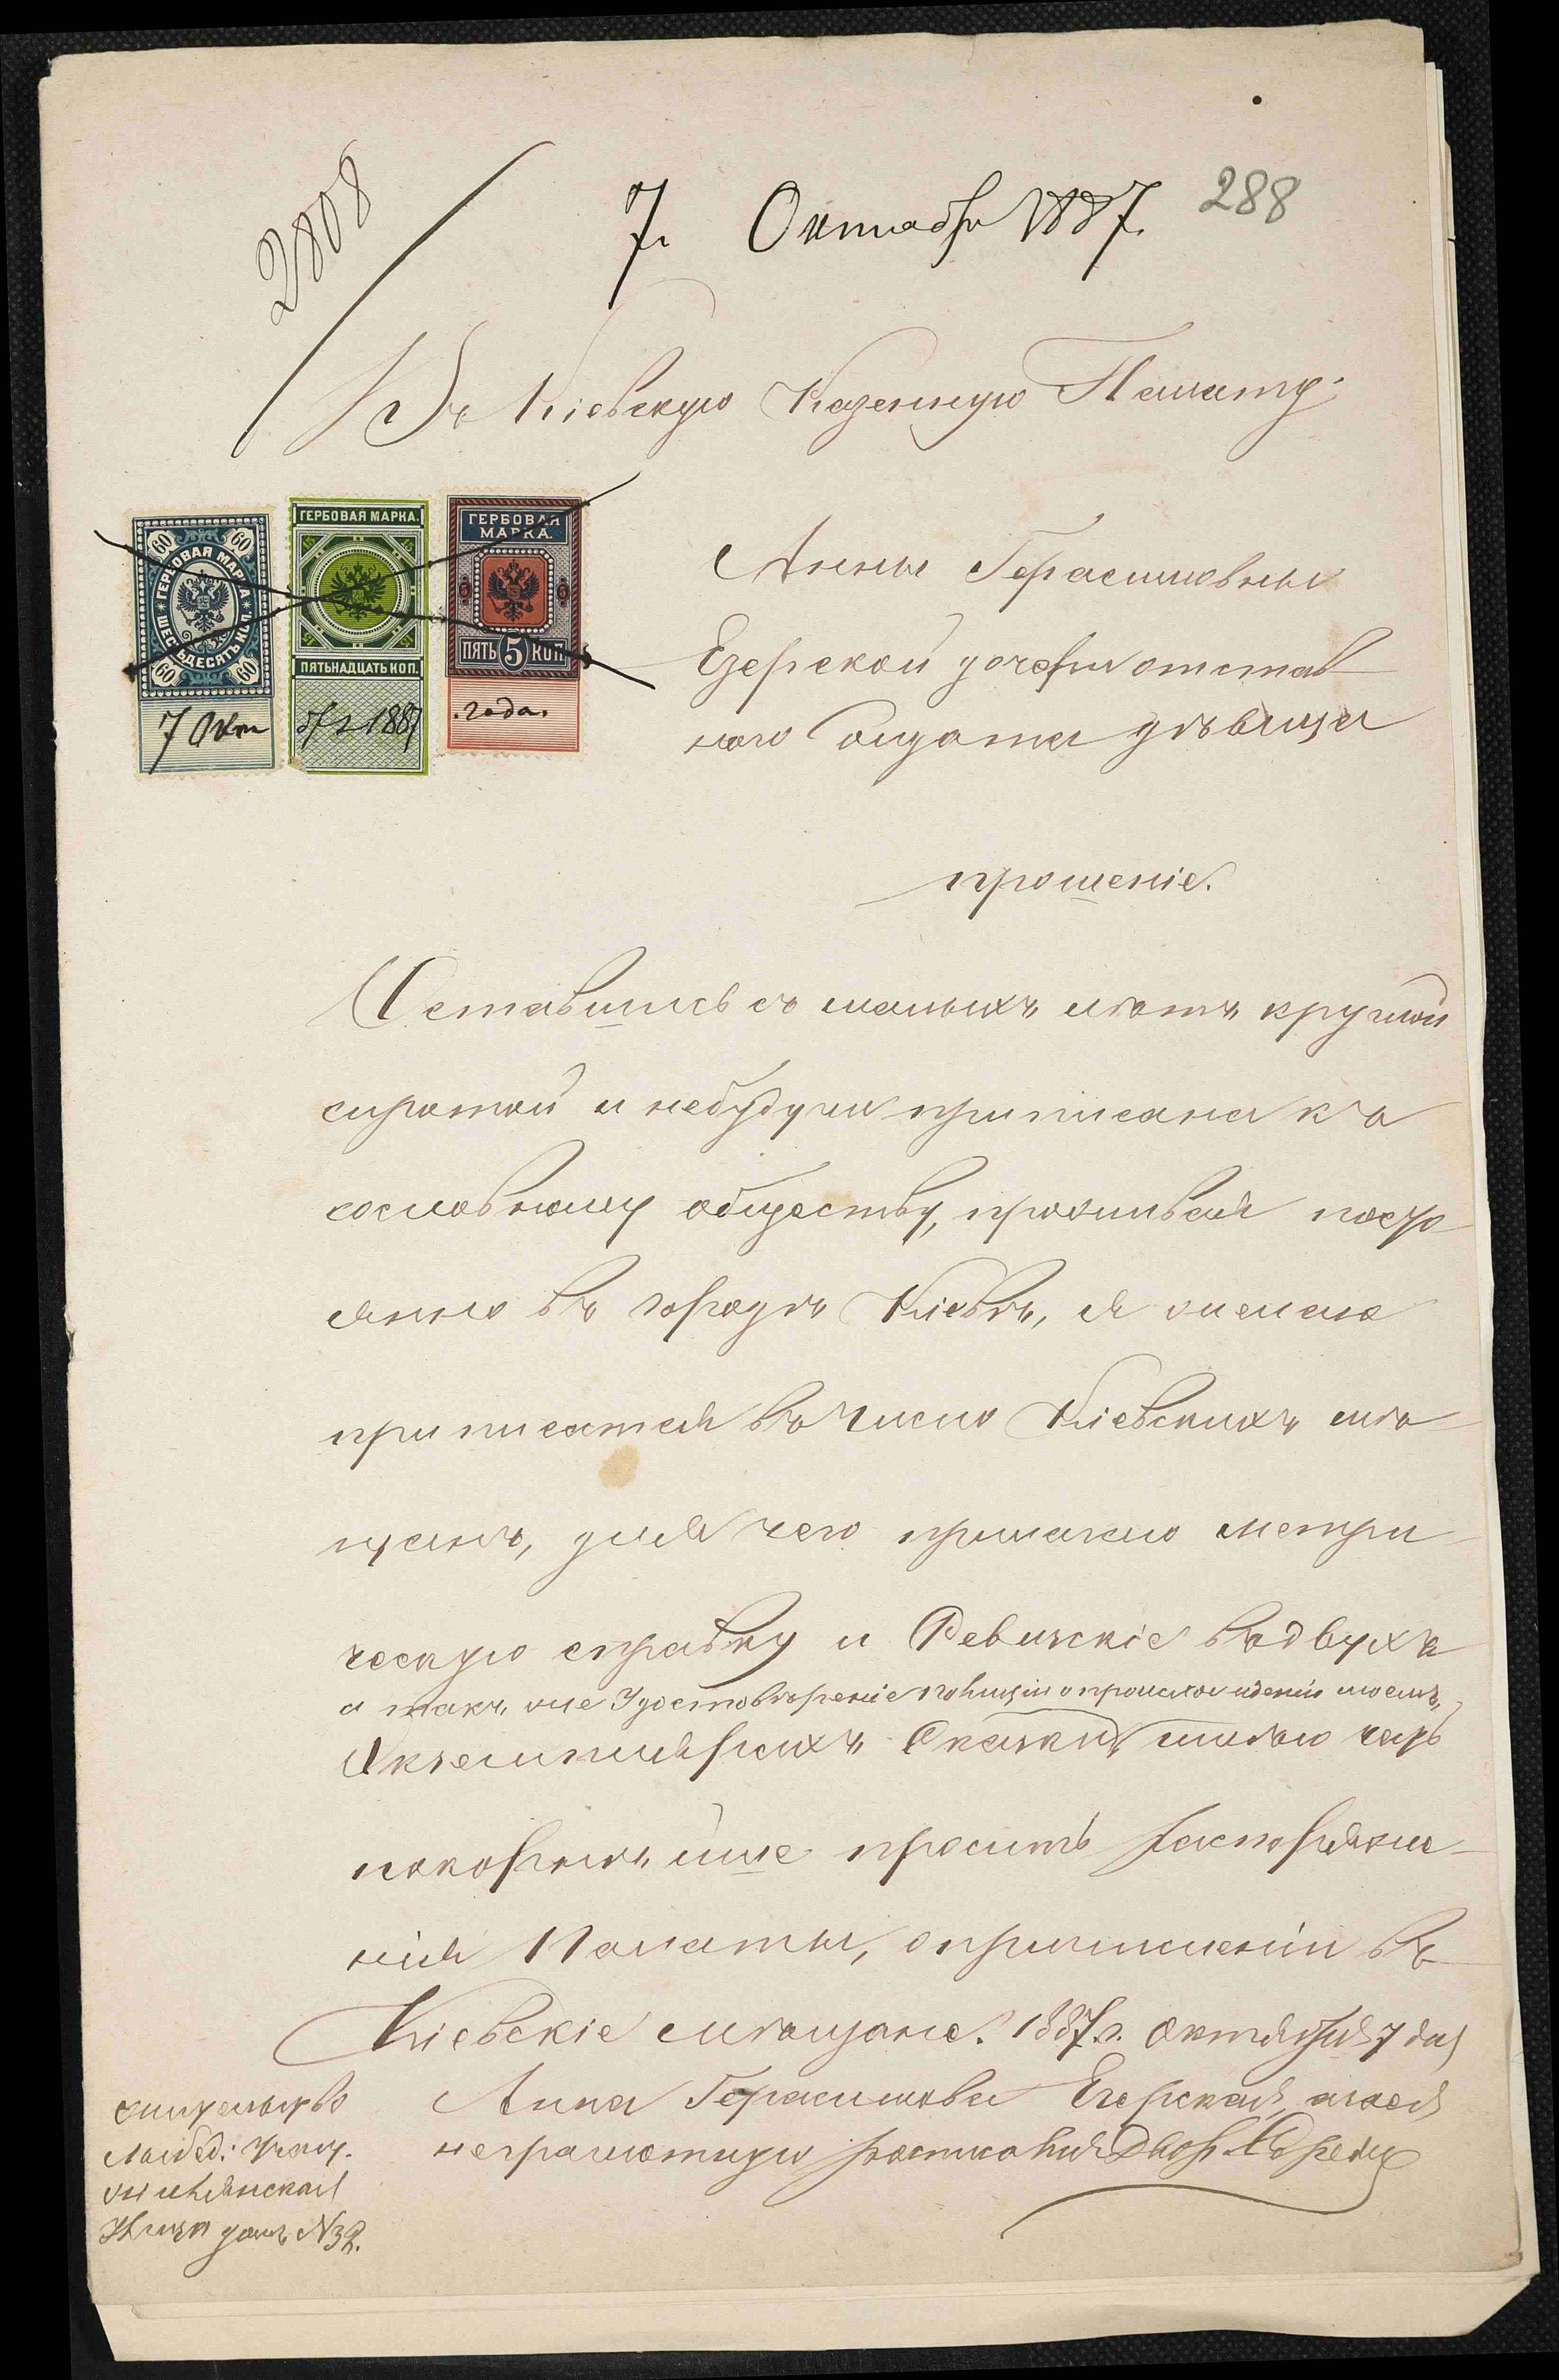 2808
7. Октября 1887.
288
Въ Кіевскую Казенную Палату.
60 60
ГЕРБОВАЯ МАРКА
ШЕСТЬДЕСЯТЪ КОП.
60 60
7 Окт
ГЕРБОВАЯ МАРКА.
15 15
15 15
ПЯТЬНАДЦАТЬ КОП.
1887
ГЕРБОВАЯ
МАРКА.
ПЯТЬ 5 КОП
года.
Анны Герасимовны
Езерской дочери отстав
ного Солдата дѣвицы
прошеніе.
Оставшись съ малыхъ лѣтъ круглой
сиротой и небудучи приписана къ
сословному обществу, проживая посто
янно въ городѣ Кіевѣ, я желаю
приписатся въ число Кіевскихъ мѣ
щанъ, для чего прилагаю метри
ческую справку и Ревизскіе въ двухъ
а такъ же Удостовѣреніе полиціи о происхожденіи моемъ,
Экземплярахъ Сказки, имѣю честь
покорнѣйше просить распоряже
нія Палаты, о причисленіи въ
Кіевскіе мѣщане. 1887 г. октября 7 дня
Анна Герасимова Езерская, а за ея
неграмотную росписался Двор.
жительство
Лыбед: Участ.
Жилянская
Улица домъ №